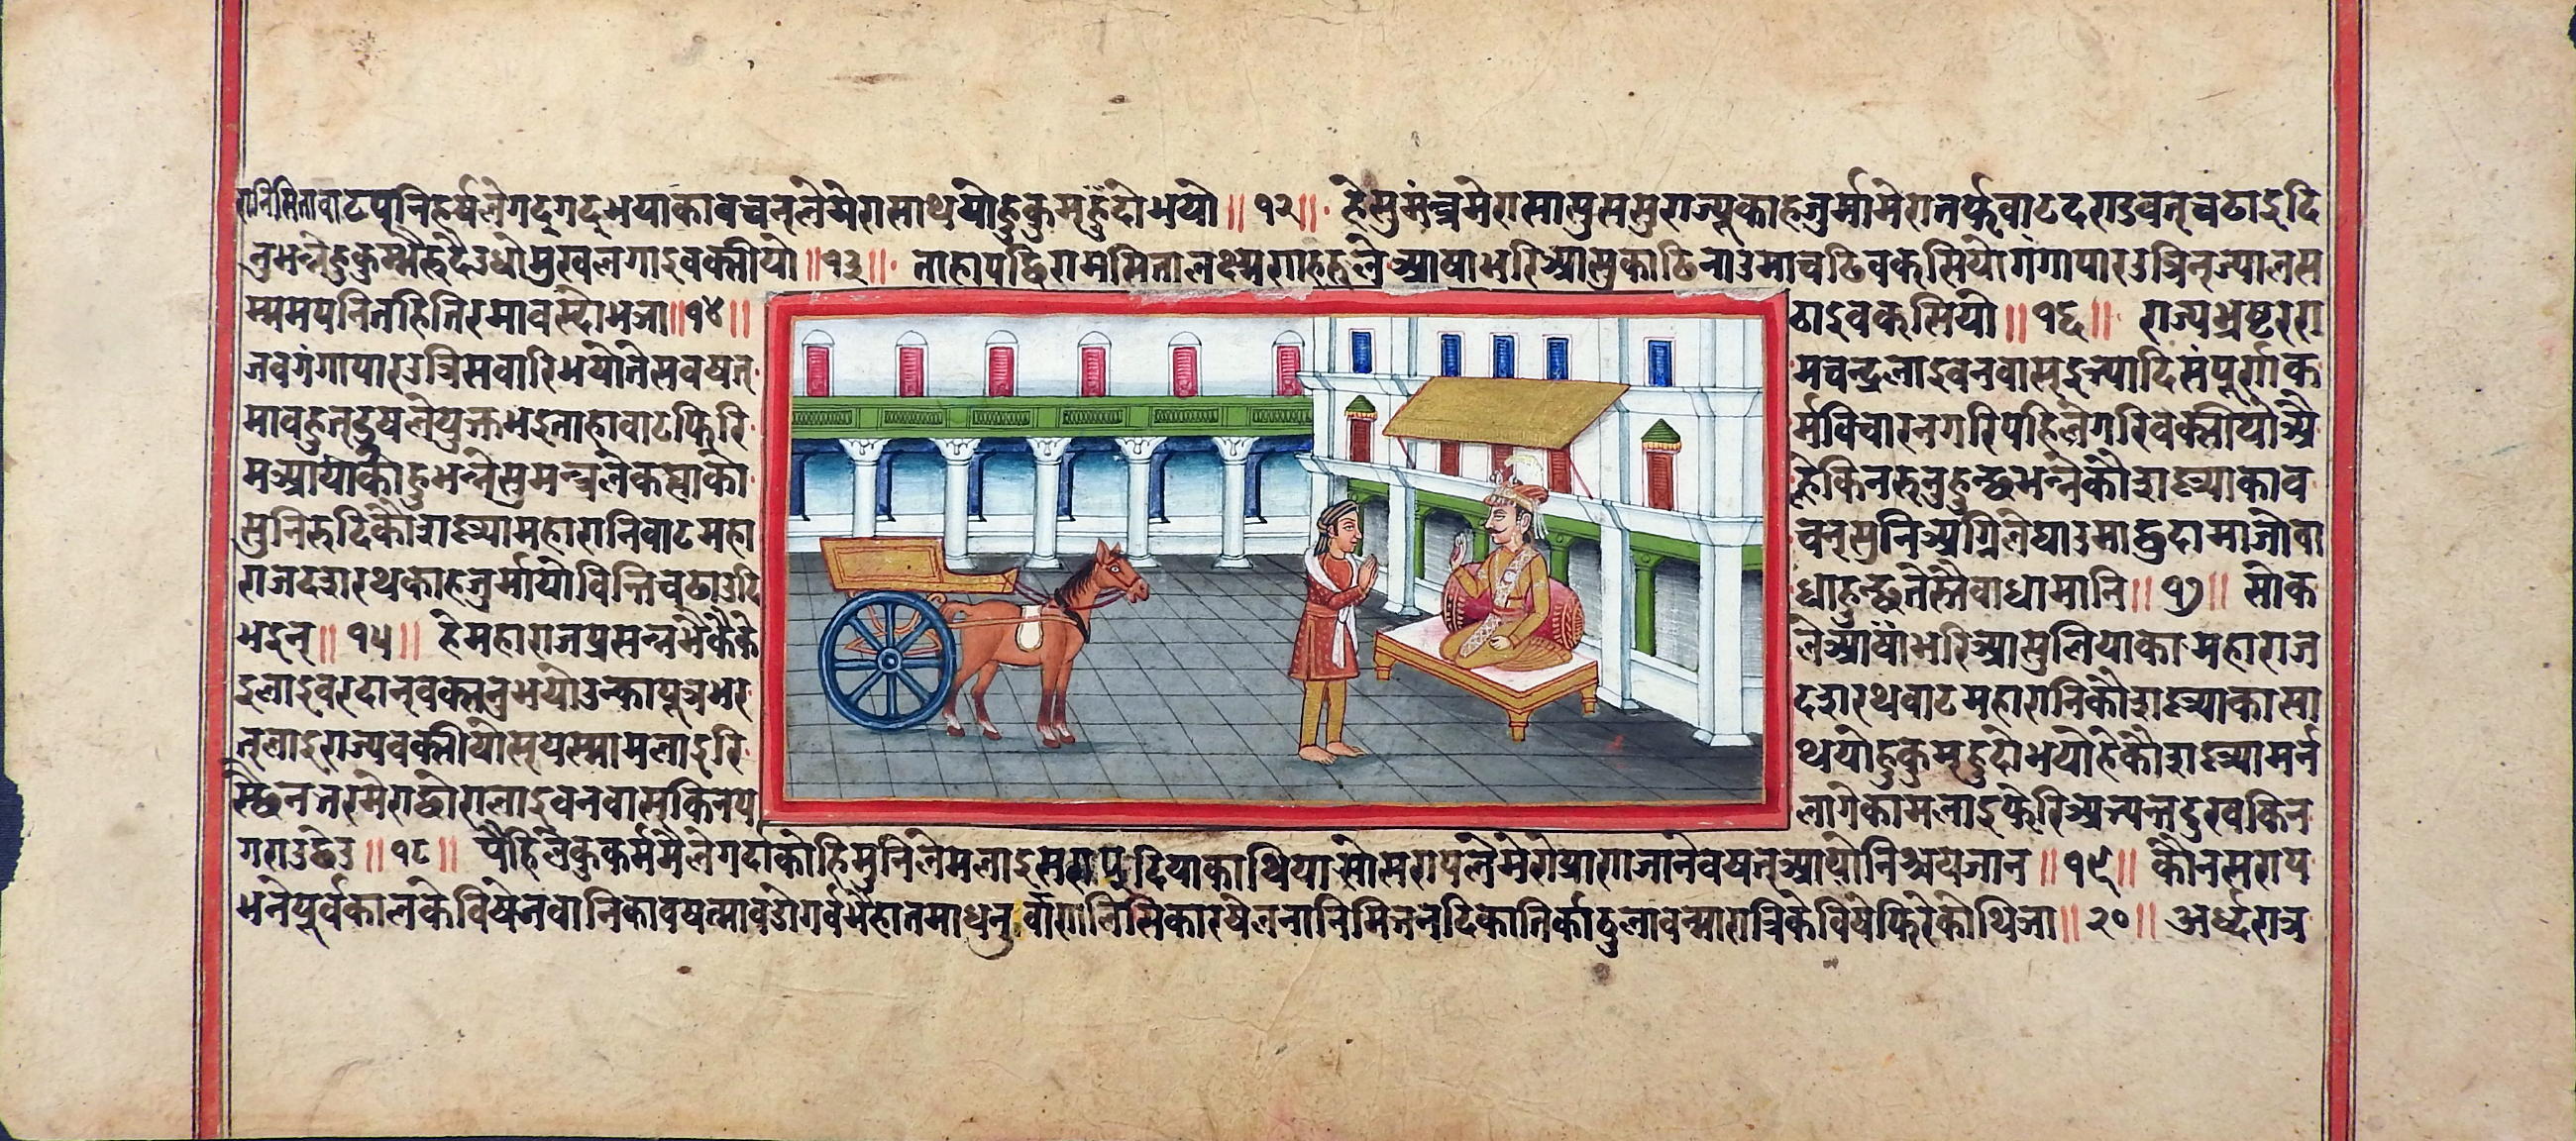 रानिसितावाटपूनिहर्षलेगद्गद्भयाकावचन्लेमेरासाथयोहुकुम्हुंदोभयो॥१२॥ हेसुमंन्त्रमेरासासुससुराज्यूकाहजुर्मामेरातर्फवाटदराडवत्चढाइदि
नुभन्नेहुकुम्भैरुंदैउधोमुखलगाइवक्सीयो॥१३॥ ताहापछिरामसितालक्ष्मराहरुले आषाभरिआसुकाढिनाउमाचढिवकसियोगंगापारउत्रिन्ज्यालस
म्ममपनितहितिरमावस्दोभञा॥१४॥
जवगंगापारउत्रिसवारिभयोतेसवषत्
मावहुत्दुषलेयुक्तभइताहावाटफिरि
मआयाकोहुभन्नेसुमन्त्रलेकह्याको
सुनिरुदिकौशल्यामहारानिवाटमहा
राजदशरथकाहजुर्मायोविन्तिचढाउदि
भइन्॥१५॥ हेमहाराजप्रसन्नभैकैके
इलाइवरदान्वक्सनुभयोउन्कापूत्रभर
त्लाइराज्यवक्सीयोस्यस्मामलाइरि
स्छैनतरमेराछोरालाइवनवास्किनप
ठाइवकसियो॥१६॥ राज्यभ्रष्टररा
मचन्द्रलाइवनवास्इत्यादिसंपूर्राक
र्मविचारनगरिपहिलेगरिवक्सीयोअै
हेकिनरुनुहुन्छभन्नेकौशल्याकाव
चन्सुनिअग्निलेघाउमाछुदामाजोवा
धाहुन्छतेस्तैवाधामानि॥१७॥ सोक
लेआषाभरिआसुलियाकामहाराज
दशरथवाटमहारानिकौशल्याकासा
थयोहुकुम्हुदोभयोहेकौशल्यामर्न
लागेकामलाइफेरिअत्यन्तदुखकिन
गराउछेउ॥१८॥ पैहिलेकुकर्ममैलेगर्दाकोहिमुनिलेमलाइसरापदियाकाथियासोसरापलेमेरोप्राराजानेवषत्आयोनिश्चयेजान॥१९॥ कौनसराप
भनेपूर्वकालकेविषेजवानिकावषत्मावडोगर्वभैहातमाधनुर्वारालिसिकारषेलनानिमित्तनदिकातिर्काठुलावन्मारात्रिकेविषेफिरेकोथिञा॥२०॥ अर्ध्दरात्र